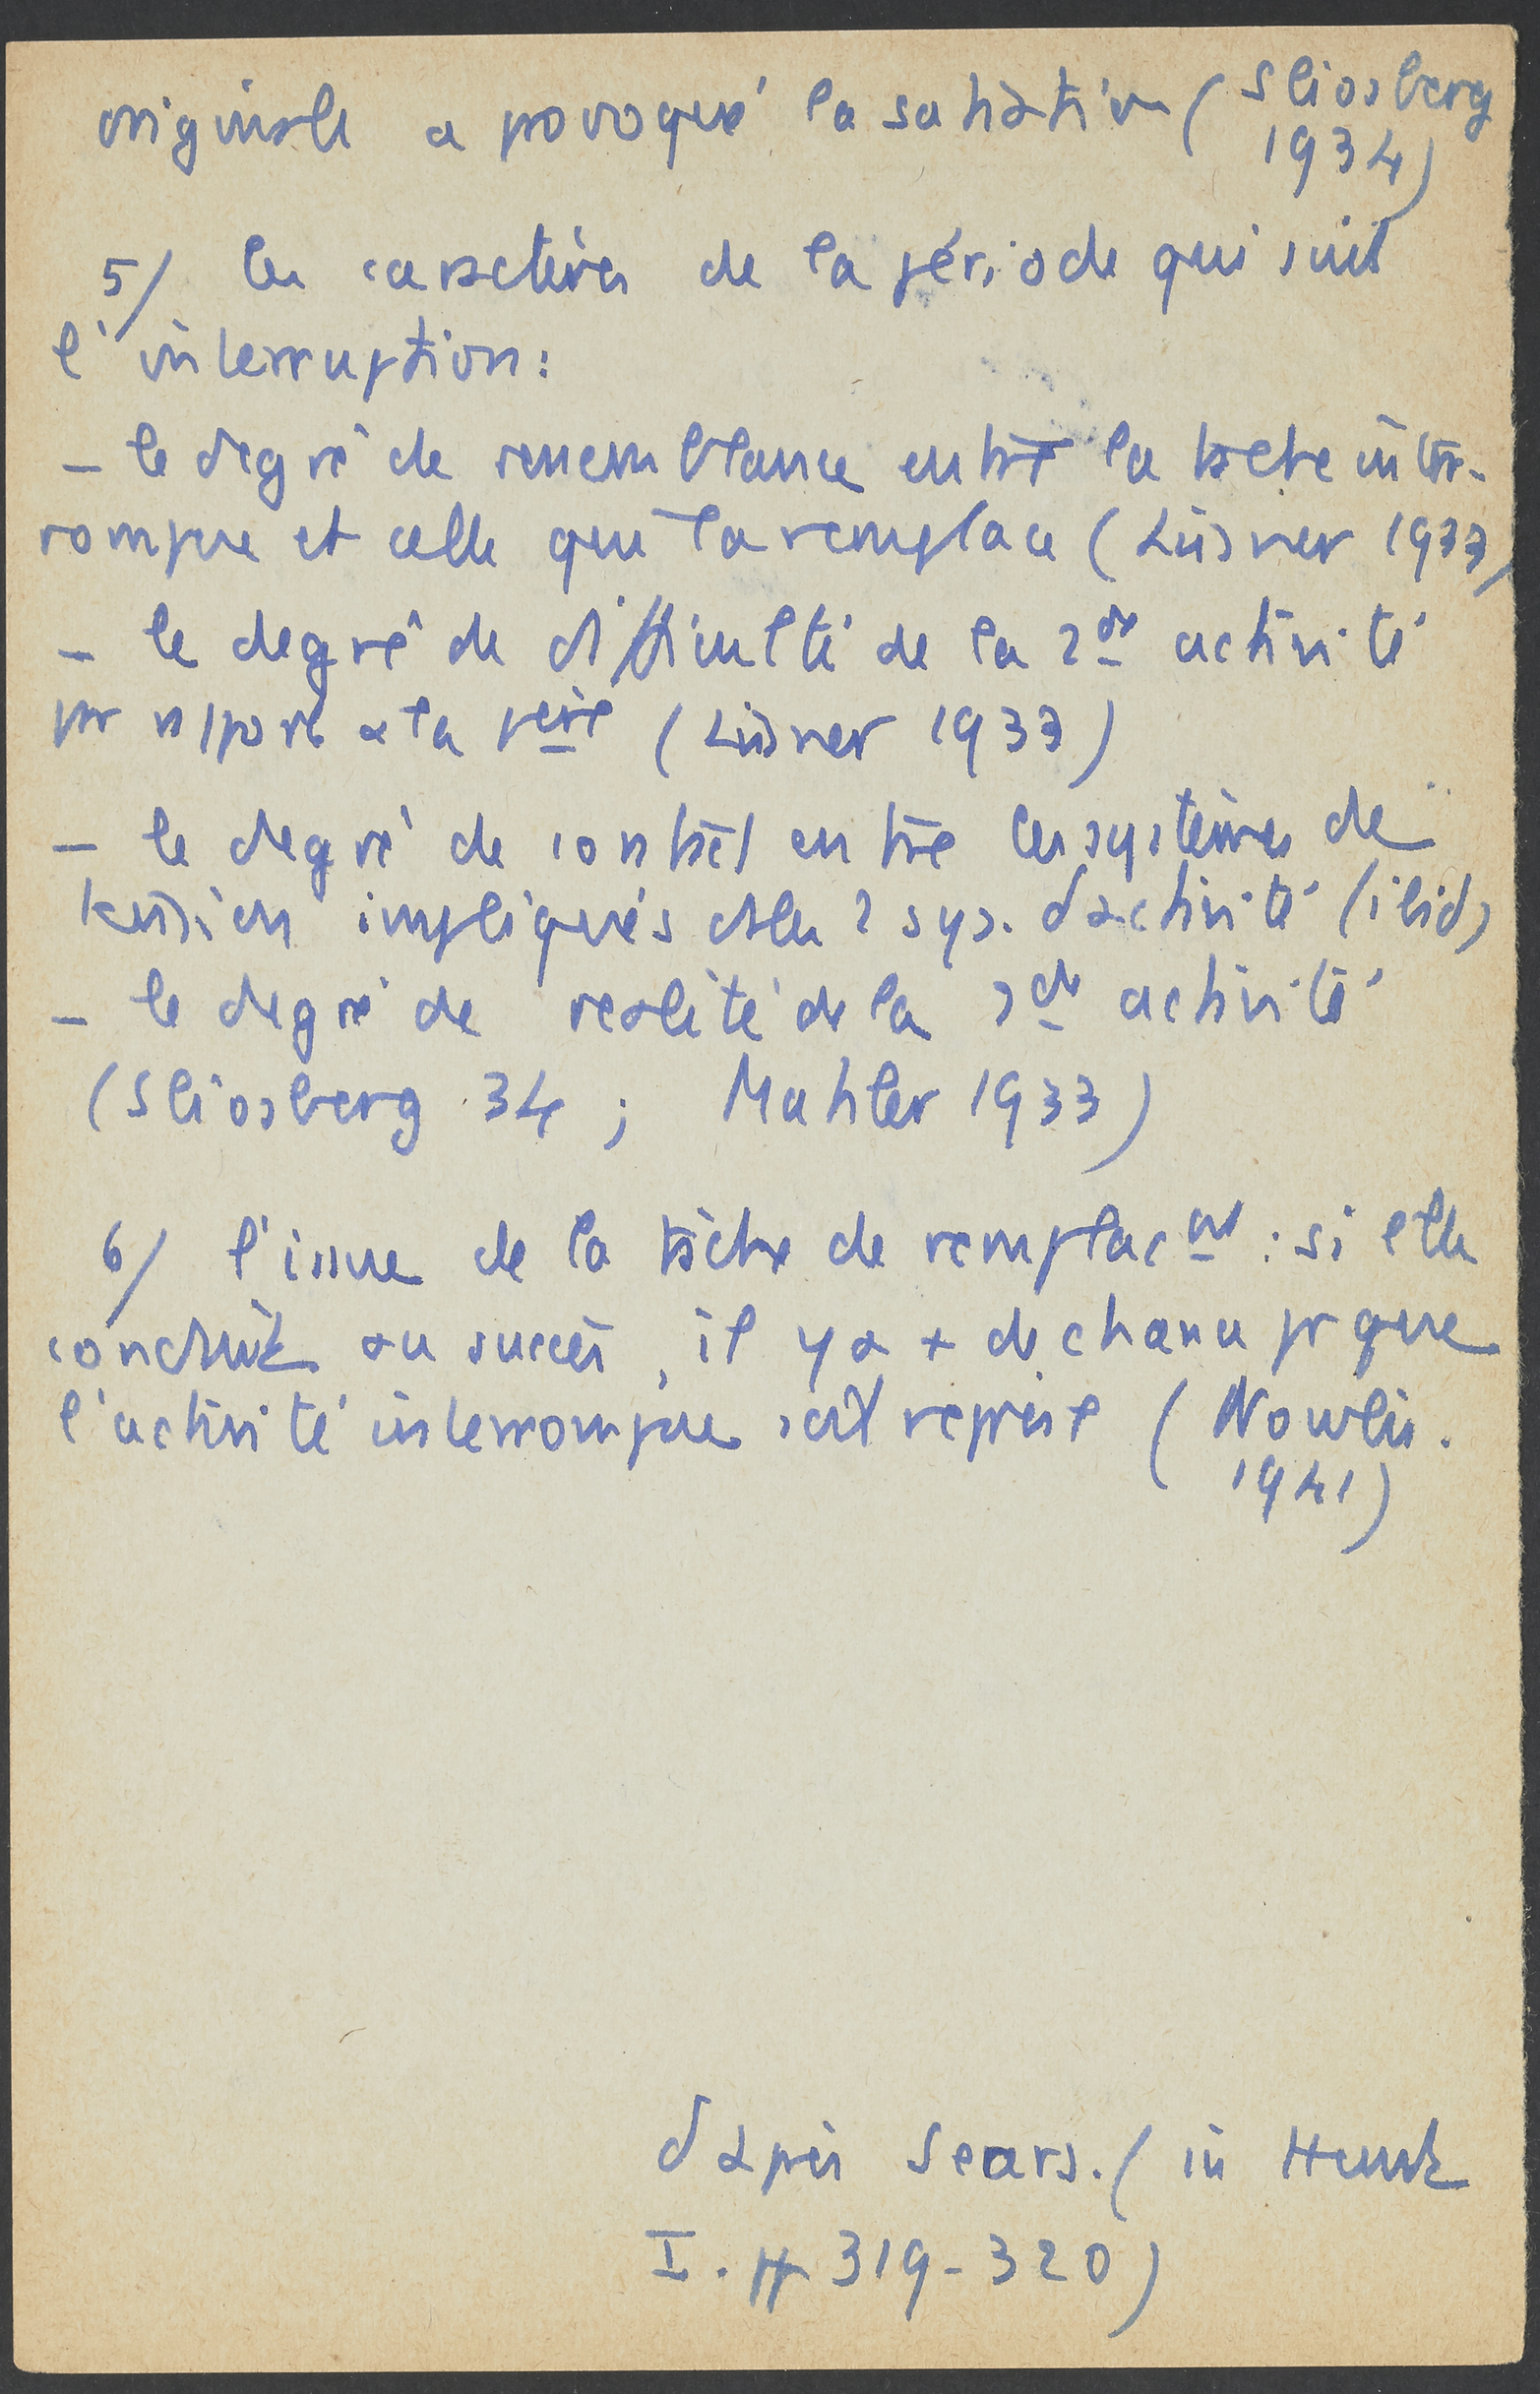 originale a provoqué la satiation (Sliosberg
1934)
5/ les caractères de la période qui suit
l'interruption:
– le degré de ressemblance entre la tache inter-
rompue et celle qui la remplace (Lissner 1933)
– le degré de difficulté de la 2de activité
par rapport a la 1ere (Lissner 1933)
– le degré de contact entre les systèmes de
tension impliqués ds les 2 sys. d'activité (ibid)
– le degré de realité de la 2de activité
(Sliosberg 34 ; Mahler 1933)
6/ l'issue de la tâche de remplact : si elle
conduit au succès, il y a + de chance pr que
l'activité interrompue soit reprise (Nowlis.
1941)
d'après Sears. (in Hunt
I. pp 319-320)